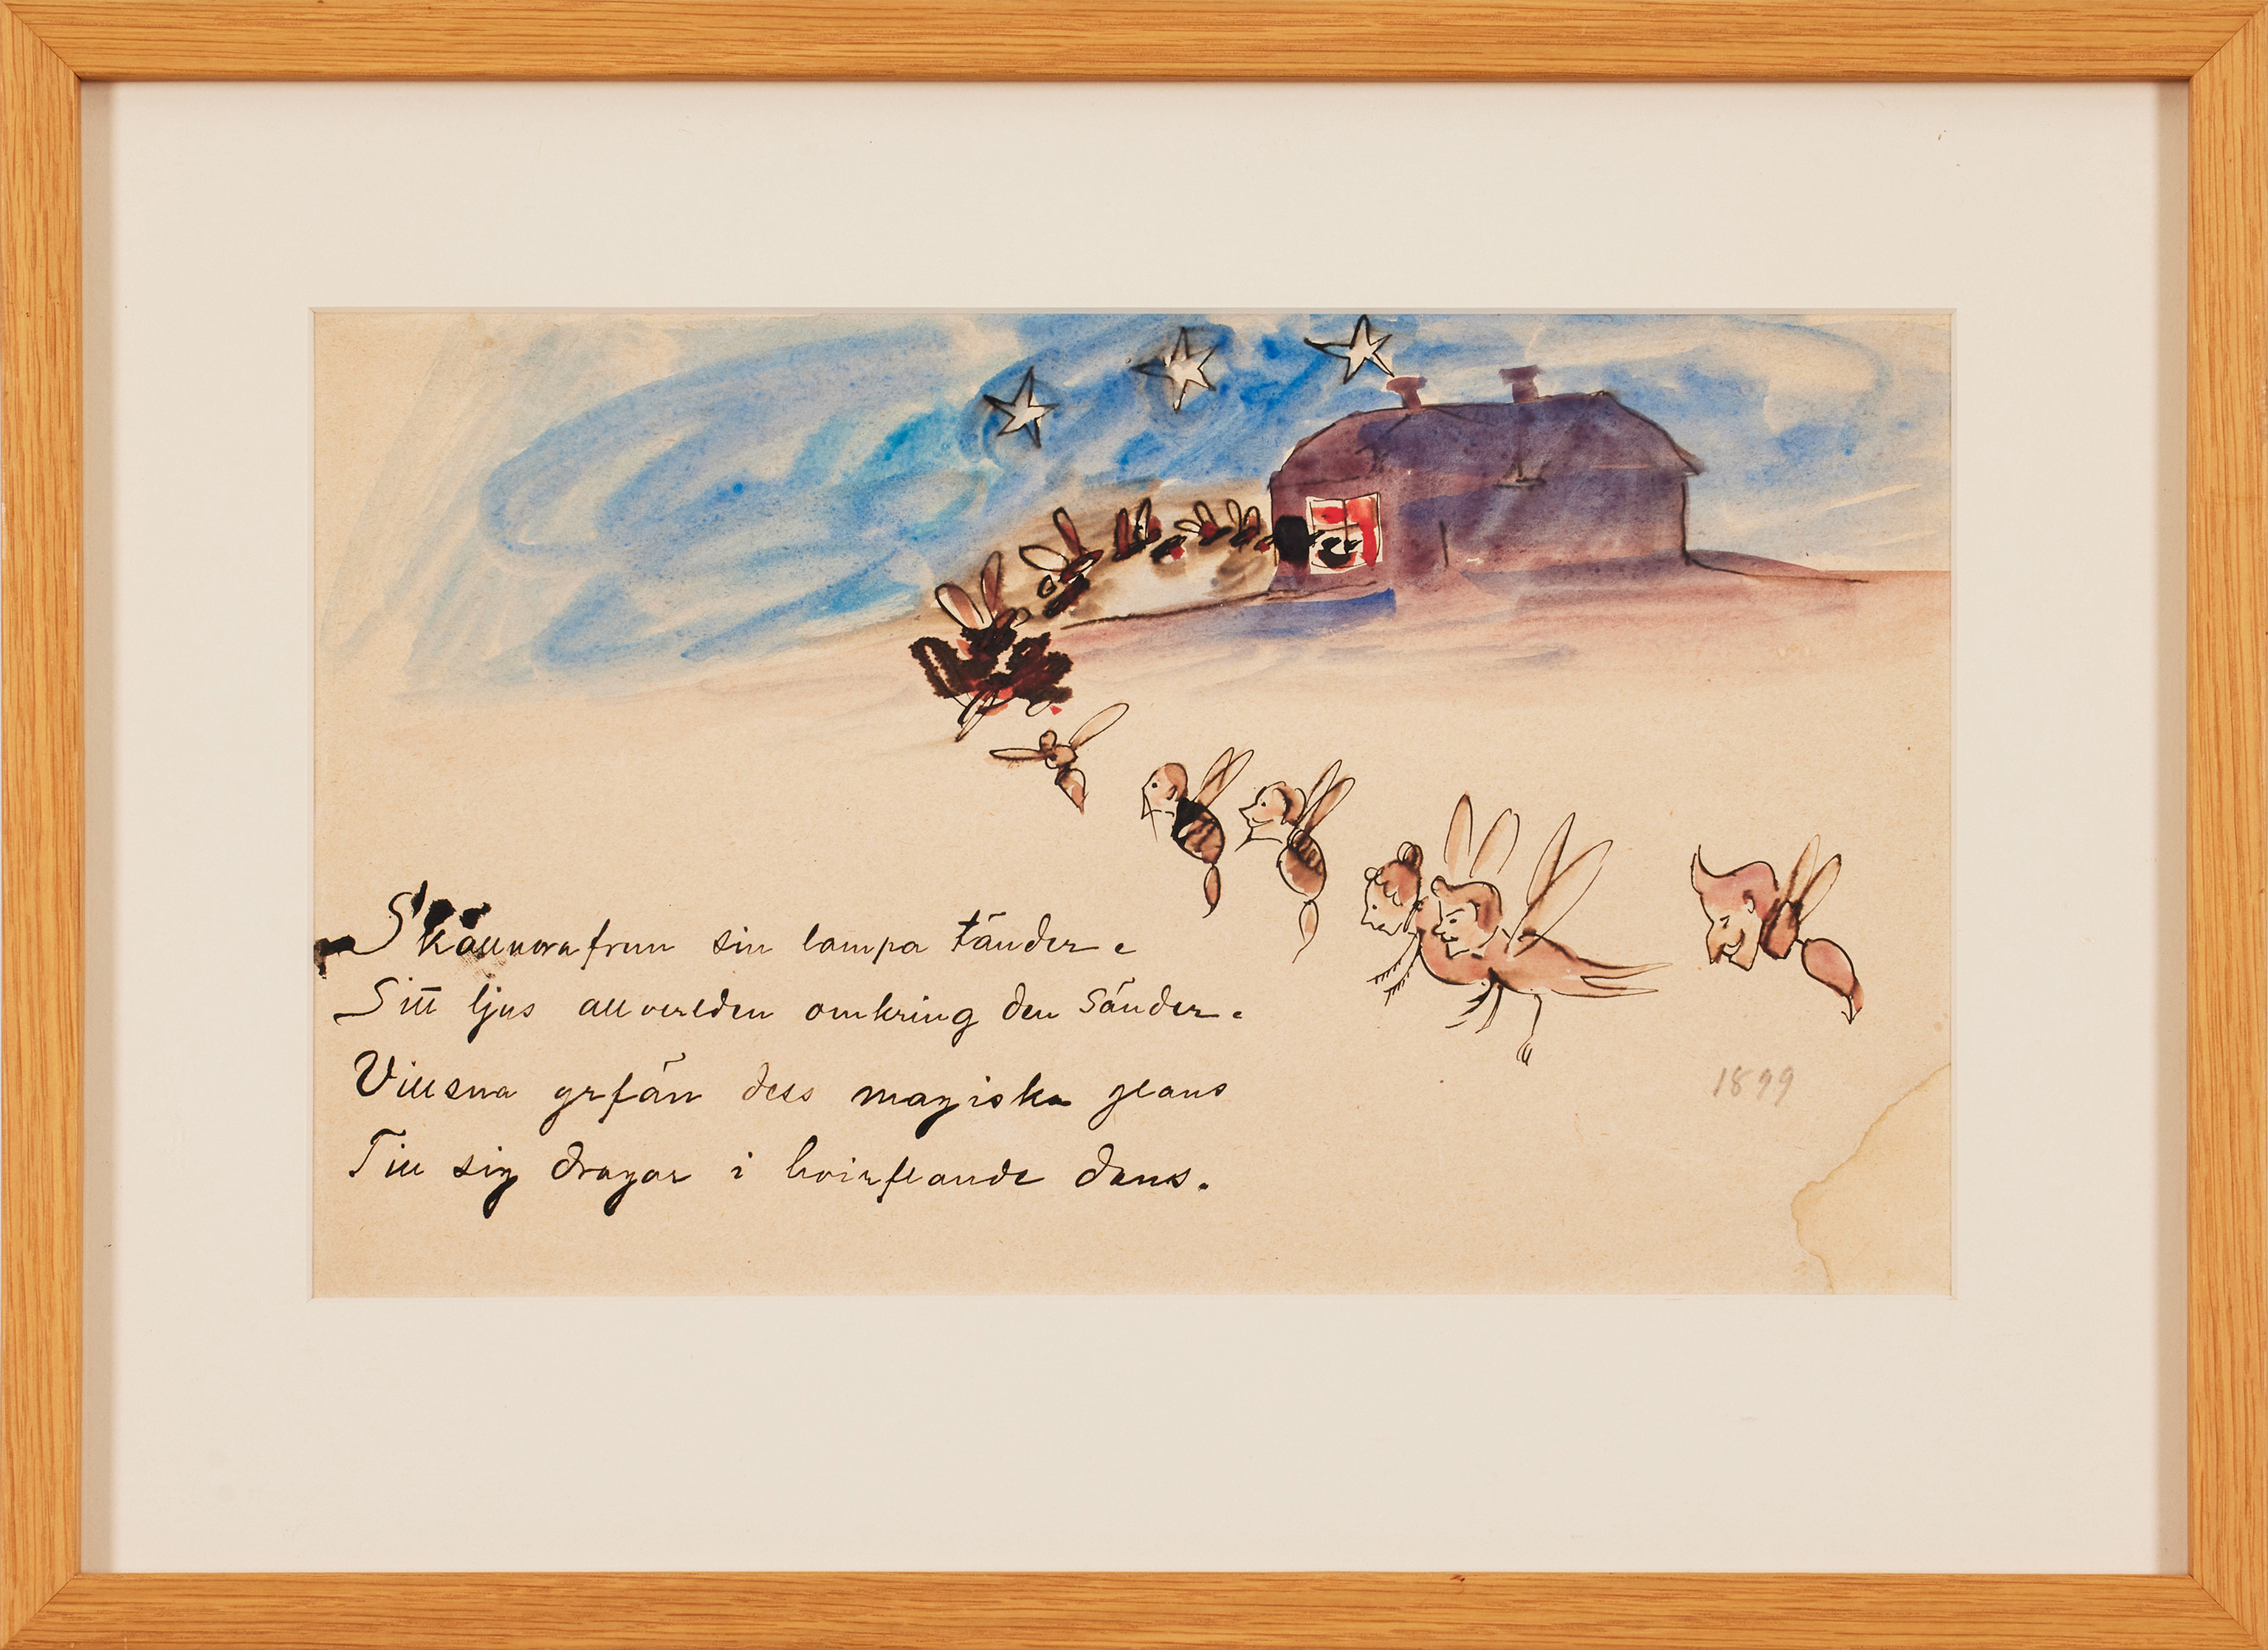 Skällnorafrun sin lampa tänder.
Sitt ljus allverlden omkring den sänder.
Villsna yrfän dess magiska glans
Till sig dragar i hvirflande dans.
1899